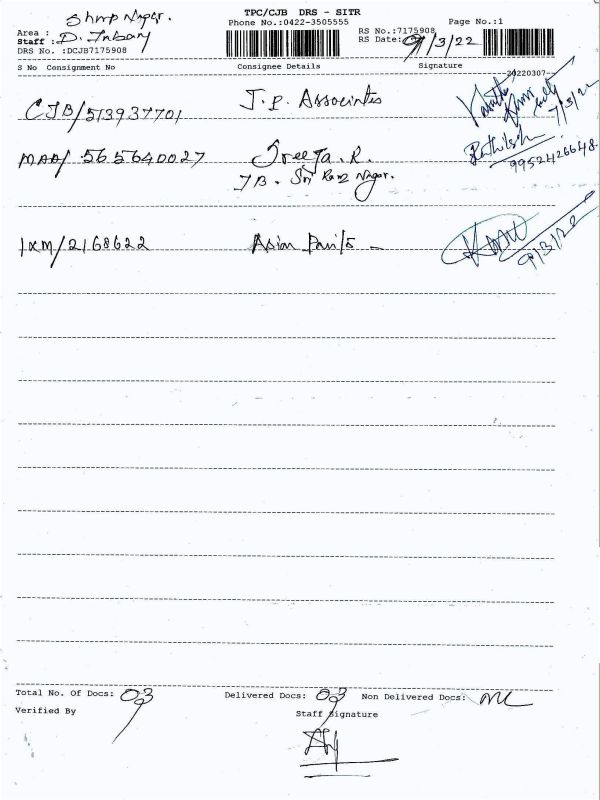 TPC/CJB DRS - SITR
Phone No.:0422-3505555
Page No.:1
Area : Sharp Nagar.
Staff : D.
DRS No. :DCJB7175908
RS No.:7175908
RS Date: 9/3/22
S No Consignment No
Consignee Details
Signature
20220307
CJB/513937701
J.P. Associates
7/3/22
MAA/ 565640027
Sreeja. R.
9952426648
7B. Sri Ram Nagar.
IXM/2168622
Asian Paints -
9/3/22
Total No. Of Docs: 03
Delivered Docs: 03
Non Delivered Docs: NIL
Verified By
Staff Signature